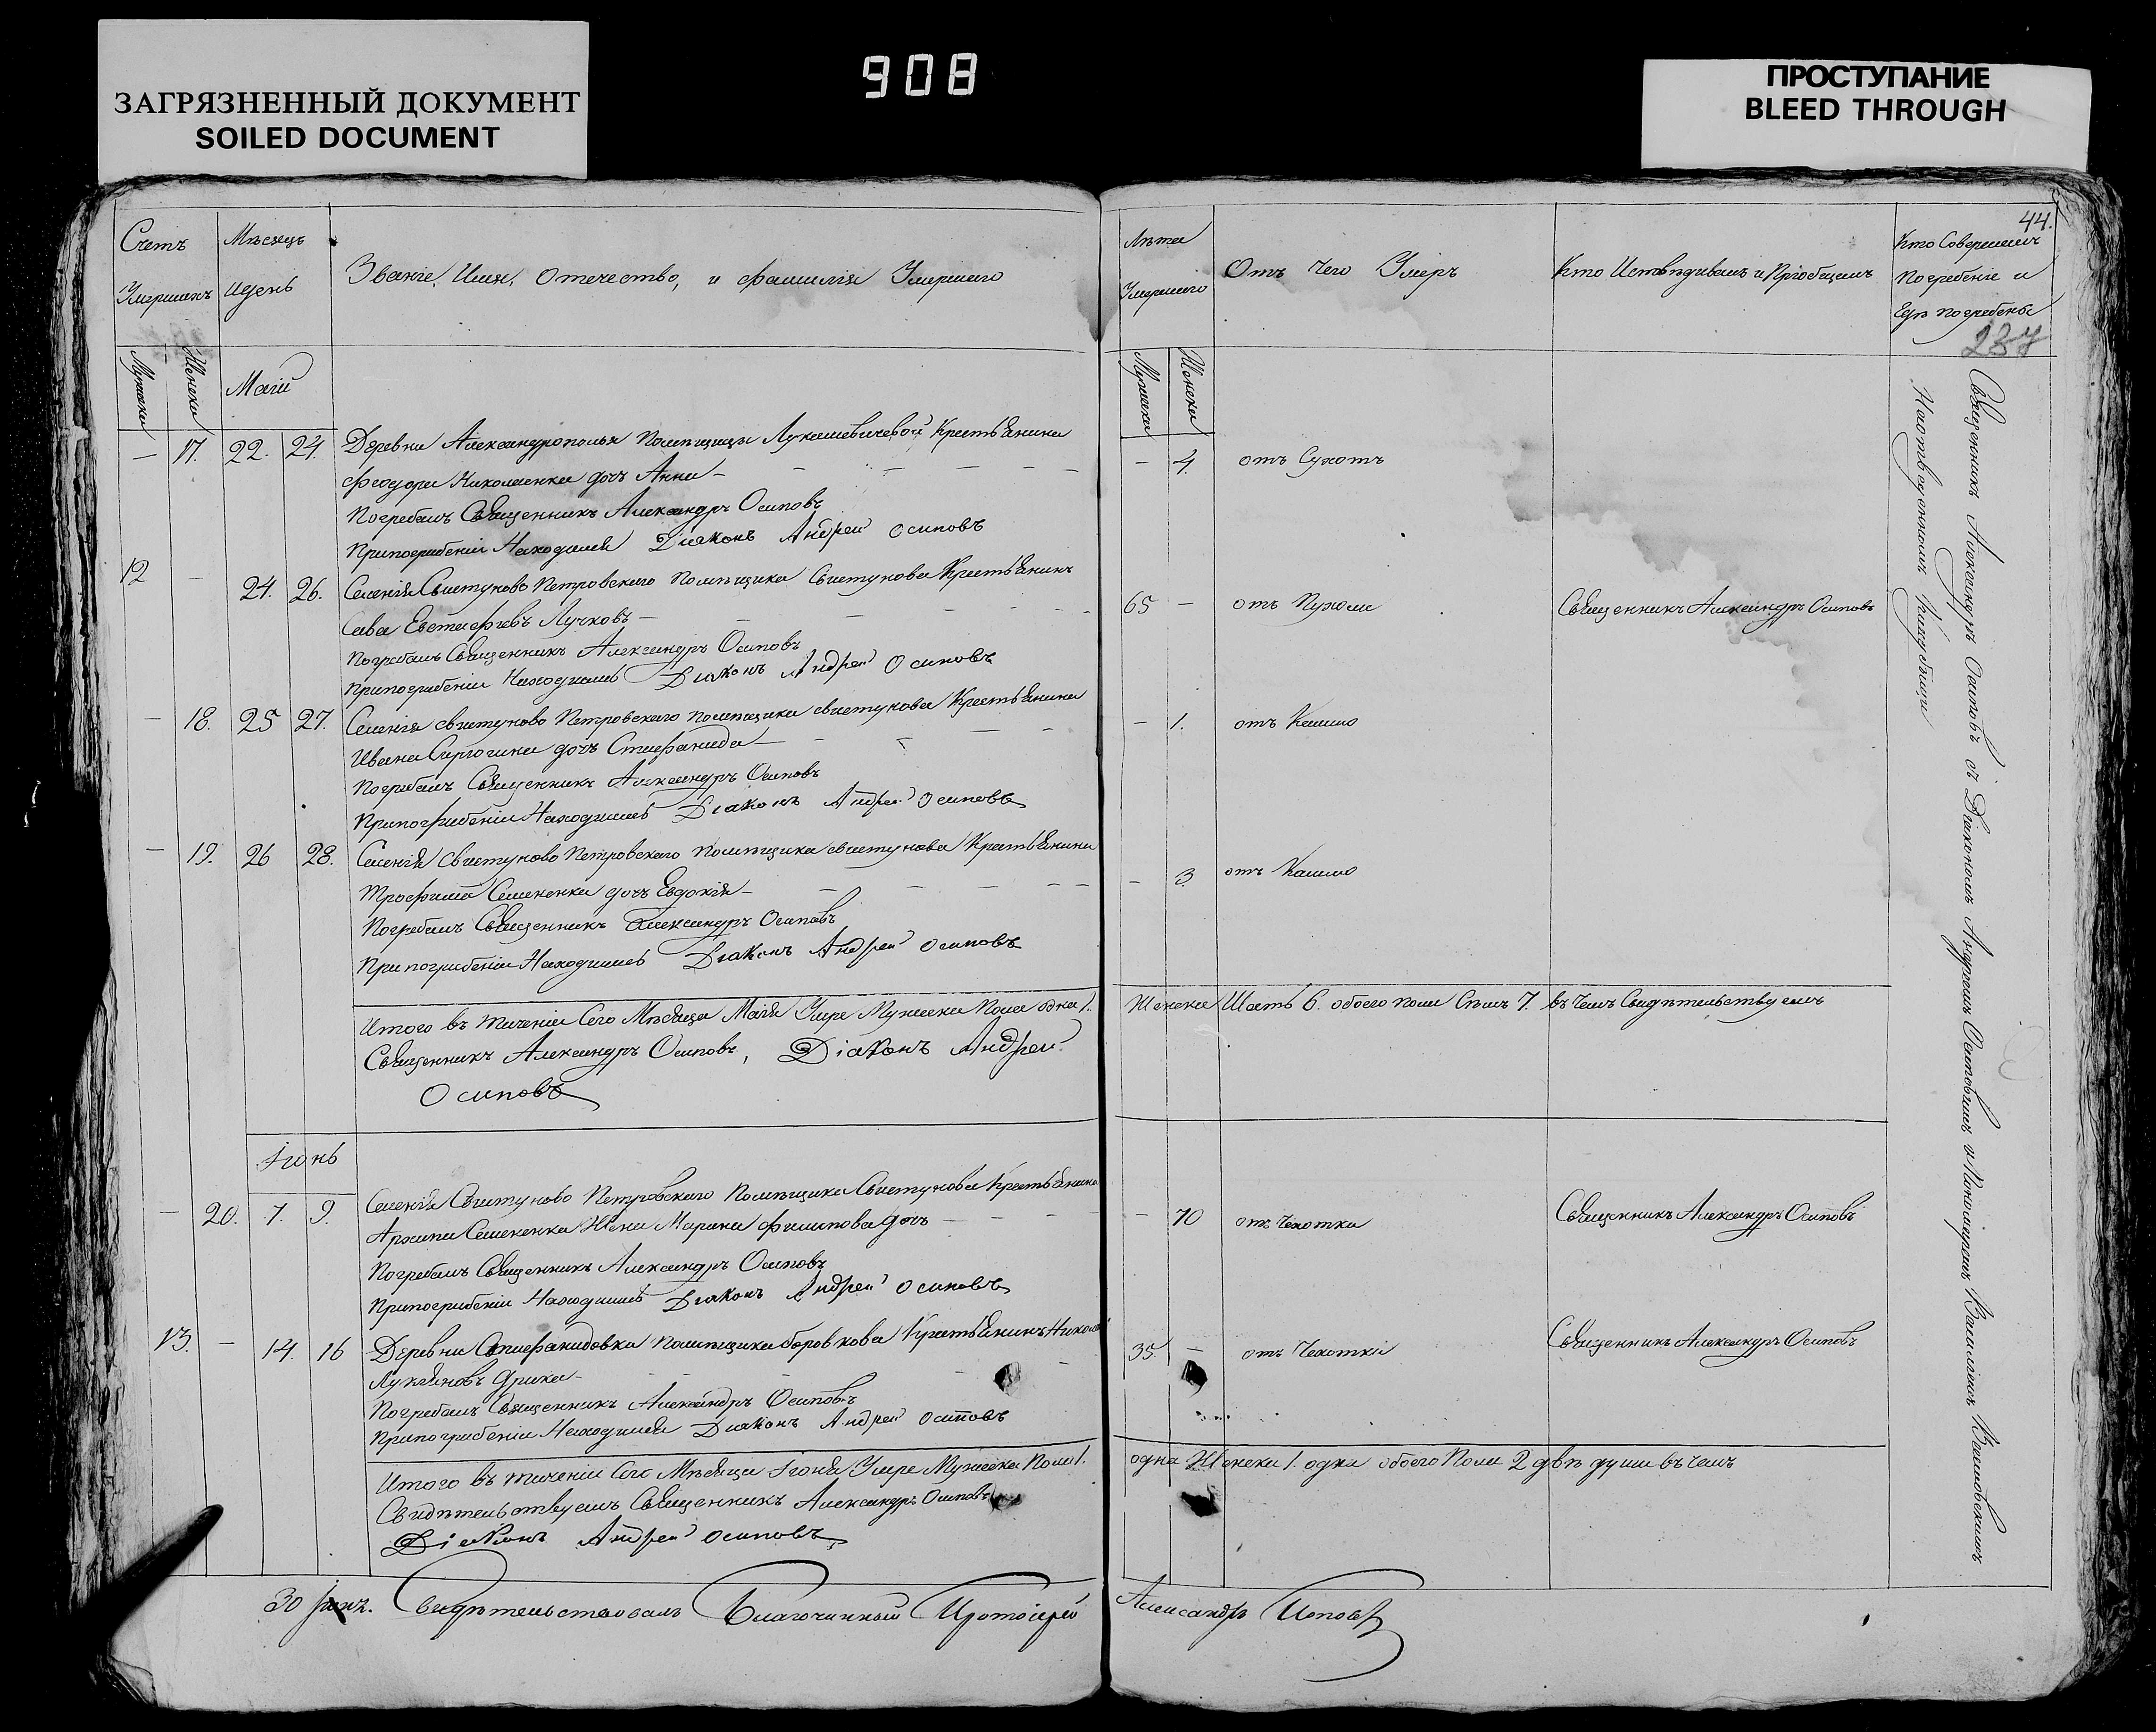 908
ЗАГРЯЗНЕННЫЙ ДОКУМЕНТ
SOILED DOCUMENT
ПРОСТУПАНИЕ
BLEED THROUGH
Счетъ Умершихъ
Мѣсяцъ идень
Званіе, Имя, отечество, и фамилія Умершаго
Мужска
Женска
Маій
— 17. 22. 24. Деревни Александрополья помѣщицы Лукашевичевой Крестьянина
Феодора Николаенка дочь Анна —
Погребалъ Священникъ Александръ Осиповъ
Припогребеніи Находился Діаконъ Андрей Осиповъ
12 — 24. 26. Селенія Свистуново Петровскаго помѣщика Свистунова Крестьянинъ
Сава Евстафіевъ Лучковъ —
Погребалъ Священникъ Александръ Осиповъ
Припогребеніи Находился Діаконъ Андрей Осиповъ
— 18. 25 27. Селенія свистуново Петровскаго помѣщика свистунова Крестьянина
Ивана дочь Стефанида —
Погребалъ Священникъ Александръ Осиповъ
Припогребеніи Находился Діаконъ Андрей Осиповъ
— 19. 26 28. Селенія свистуново Петровскаго помѣщика свистунова Крестьянина
Трофима Семененка дочь Евдокія —
Погребалъ Священникъ Александръ Осиповъ
Припогребеніи Находился Діаконъ Андрей Осиповъ
Итого въ теченіи Сего Мѣсяца Маія Умре Мужеска Пола одна 1.
Священникъ Александръ Осиповъ, Діаконъ Андрей
Осиповъ
Іюнь
— 20. 7. 9. Селенія Свистуново Петровскаго Помѣщика Свистунова Крестьянина
Архипа Семененка Жена Марина Филипова дочь
Погребалъ Священникъ Александръ Осиповъ
Припогребеніи Находился Діаконъ Андрей Осиповъ
13. — 14. 16 Деревни Стефанидовки помѣщика боровкова Крестьянинъ Николай
Лукьяновъ
Погребалъ Священникъ Александръ Осиповъ
Припогребеніи Находился Діаконъ Андрей Осиповъ
Итого въ теченіи Сего Мѣсяца Іюня Умре Мужеска Пола 1.
Свидѣтельствуемъ Священникъ Александръ Осиповъ
Діаконъ Андрей Осиповъ
30 Свидѣтельствовалъ Благочинный Протоіерей
44.
Лѣта Умершаго
Отъ Чего Умеръ
Кто Исповѣдивалъ и Пріобщалъ
Кто Совершалъ
Погребеніе и
Гдѣ погребены
237
Мужеска
Женска
— 4. отъ Сухотъ
65 — отъ Священникъ Александръ Осиповъ
— 1. отъ Кашлю
— 3. отъ Кашлю
Женска Шесть 6. обоего пола Семь 7. въ Чемъ Свидѣтельствуемъ
— 70 отъ Чахотки Священникъ Александръ Осиповъ
35. — отъ Чахотки Священникъ Александръ Осиповъ
одна Женска 1. одна обоего Пола 2 двѣ души въ чемъ
Александръ Поповъ
Священникъ Александръ Осиповъ съ Діакономъ Андреемъ Осиповымъ и Пономаремъ Василіемъ
На отведенномъ Кладбищи